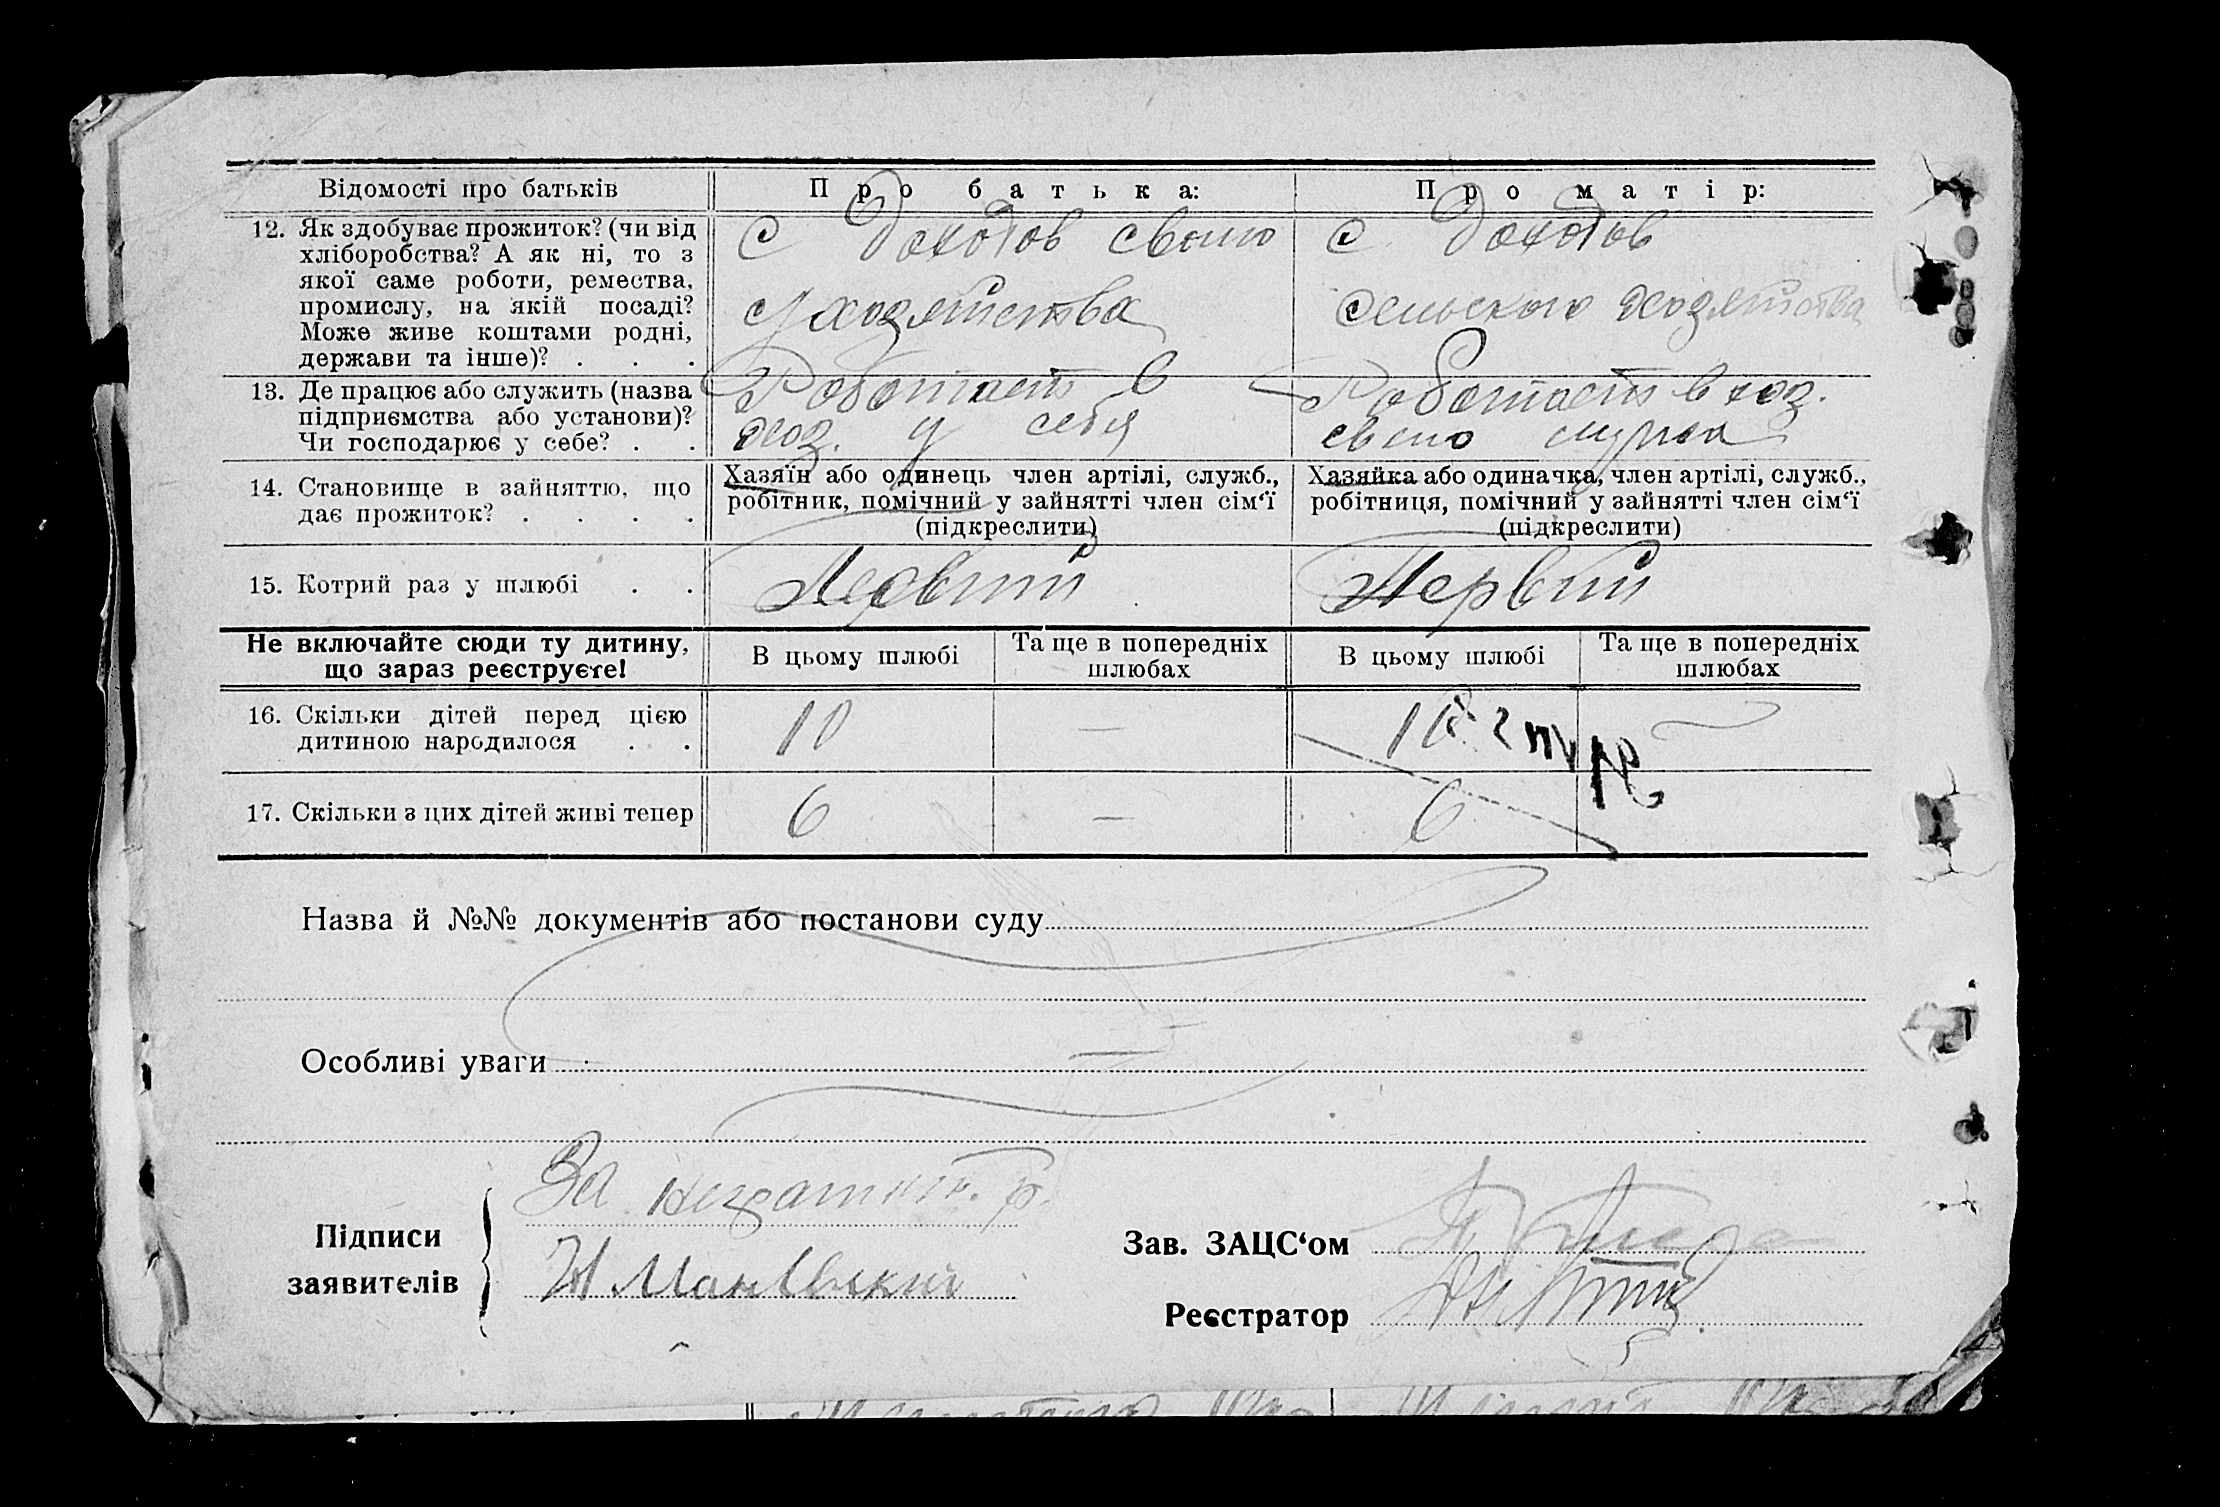 Відомості про батьків
Про батька:
Про матір:
12. Як здобуває прожиток? (чи від
хліборобства? А як ні, то з
якої саме роботи, ремества,
промислу, на якій посаді?
Може живе коштами родні,
держави та інше)? . . .
С доходов свого
с/хозяйства
С доходов
сельского хозяйства
13. Де працює або служить (назва
підприємства або установи)?
Чи господарює у себе? . .
Работает в
хоз. у себя
Работает в хоз.
свого мужа
14. Становище в зайняттю, що
дає прожиток? . . . .
Хазяїн або одинець член артілі, служб.,
робітник, помічний у зайнятті член сім‘ї
(підкреслити)
Хазяйка або одиначка, член артілі, служб.,
робітниця, помічний у зайнятті член сім‘ї
(підкреслити)
15. Котрий раз у шлюбі . .
Первий
Первий
Не включайте сюди ту дитину,
що зараз реєструєте!
В цьому шлюбі
Та ще в попередніх
шлюбах
В цьому шлюбі
Та ще в попередніх
шлюбах
16. Скільки дітей перед цією
дитиною народилося . .
10
—
10
17. Скільки з цих дітей живі тепер
6
—
6
Назва й №№ документів або постанови суду
Особливі уваги
Підписи
заявителів
За неграмотн.
Зав. ЗАЦС‘ом
Реєстратор